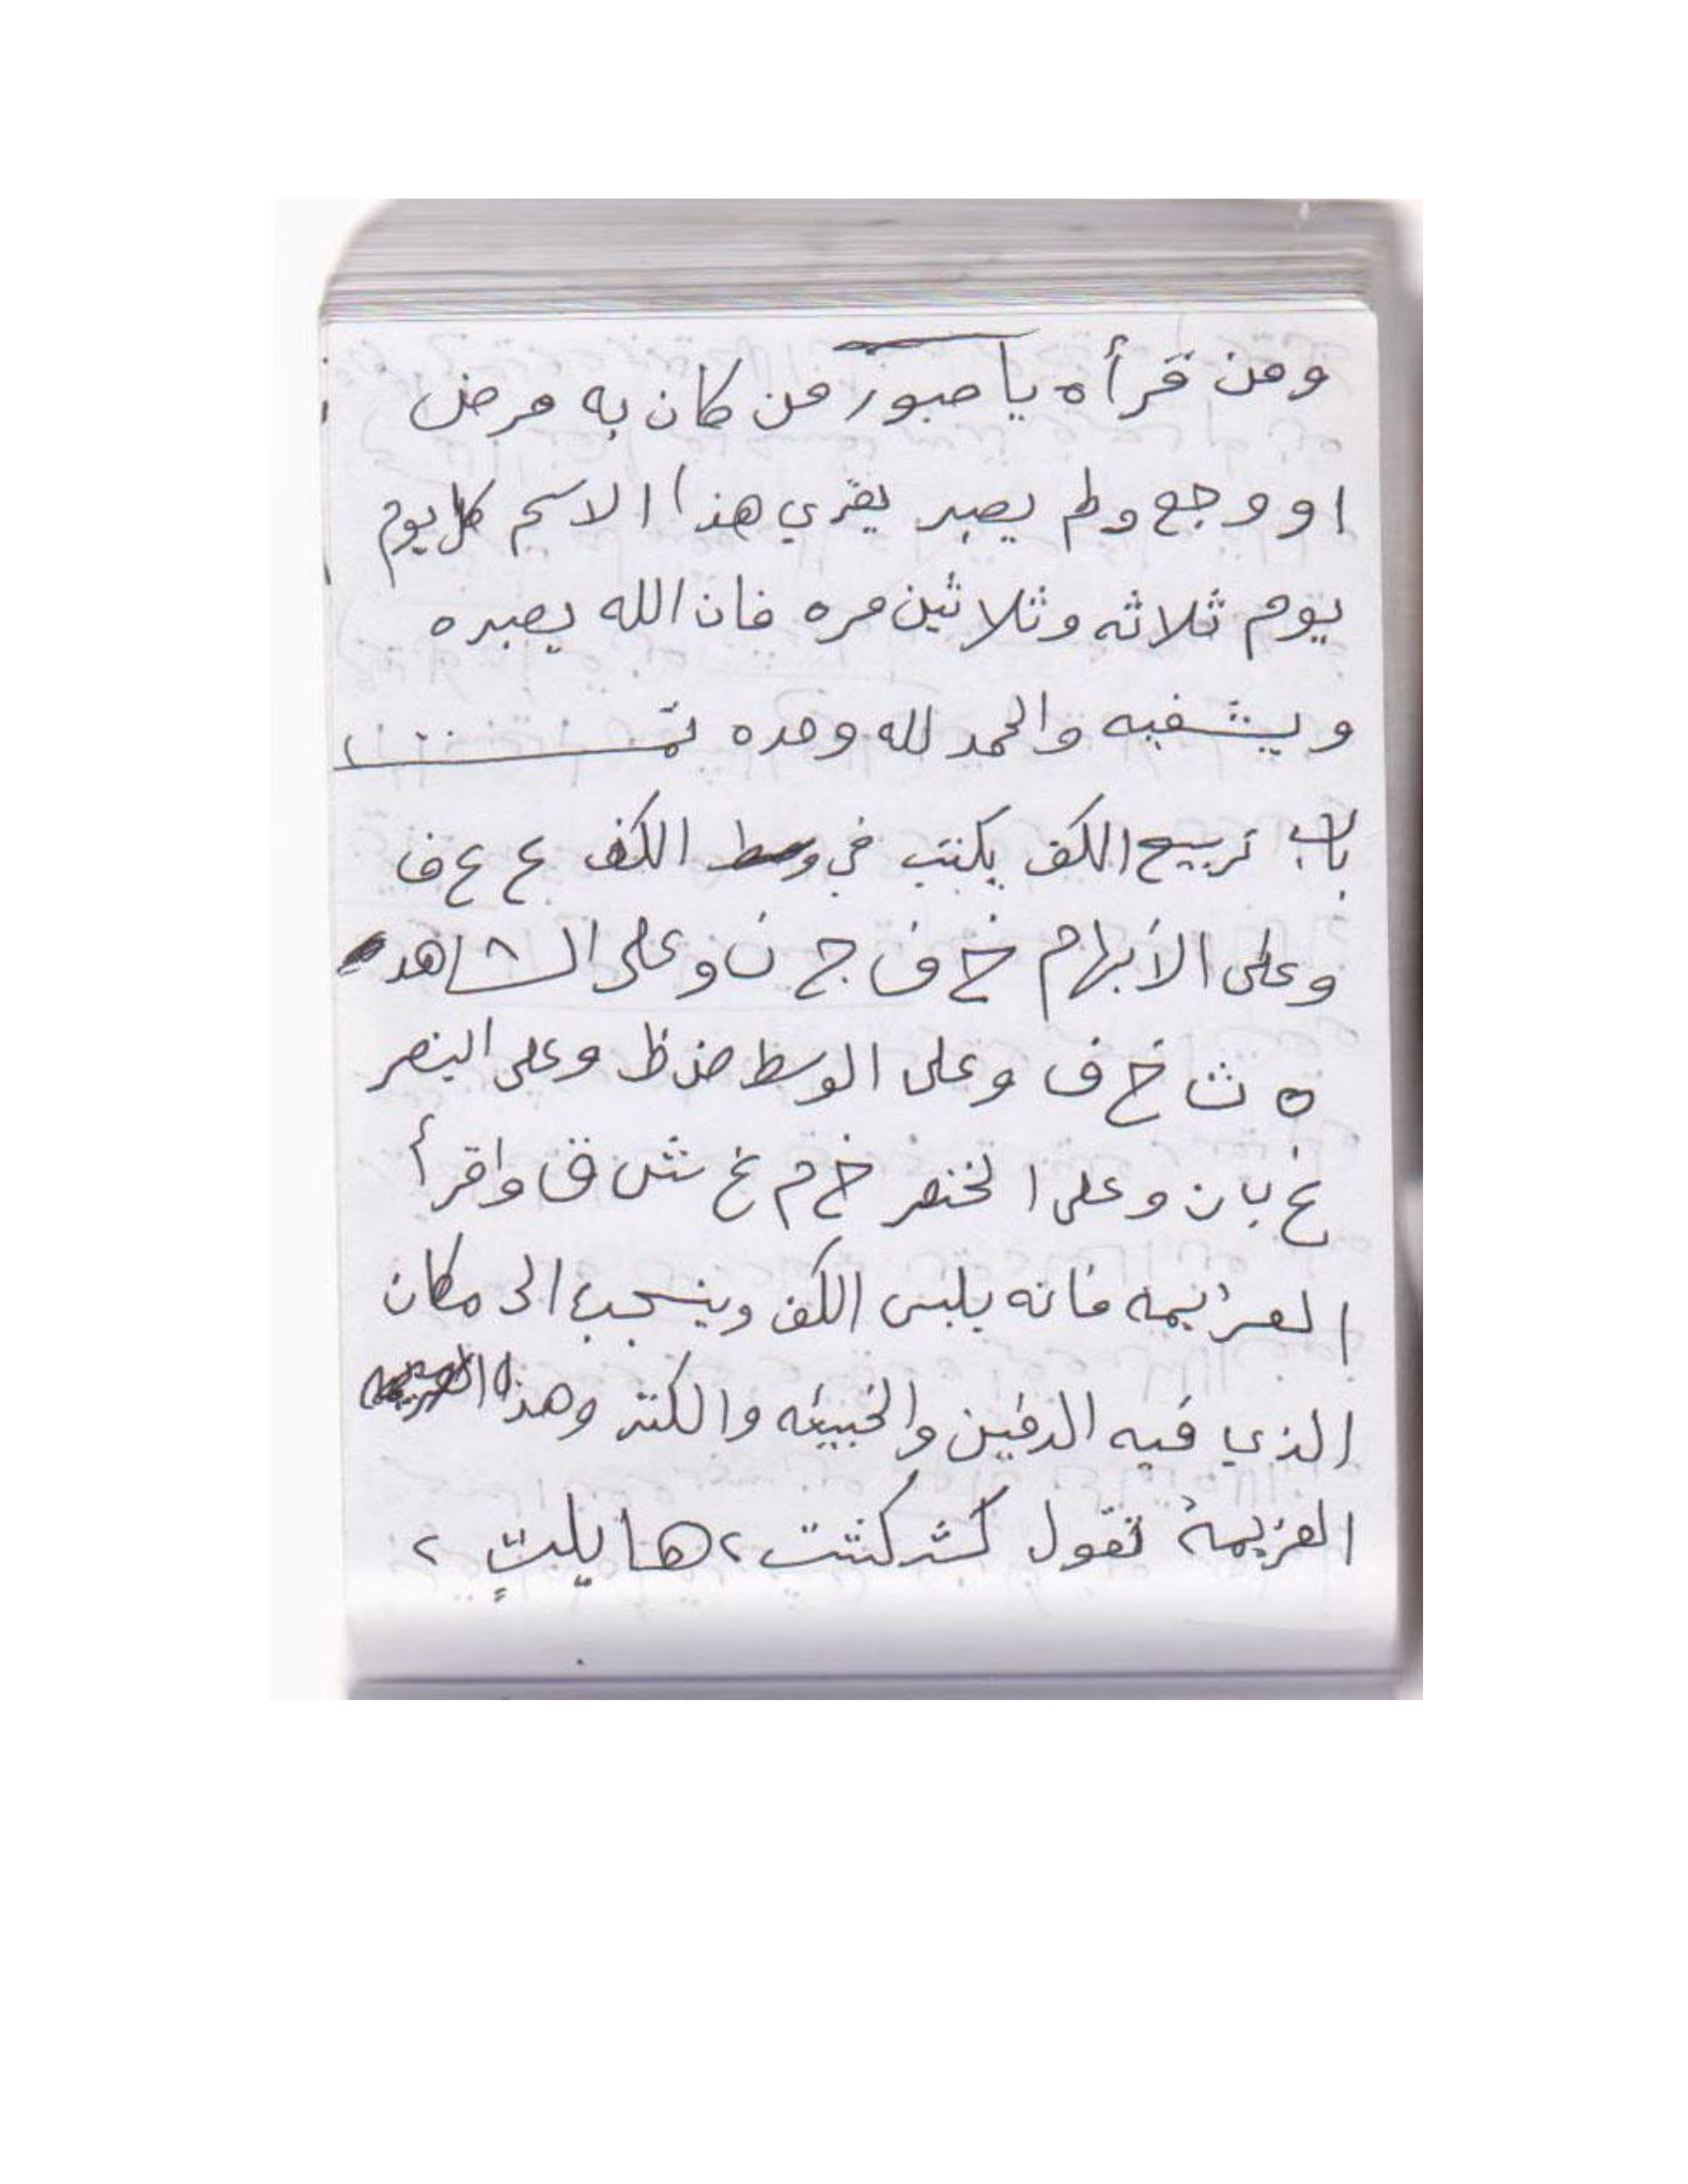 ومن قرأه يا صبور من كان به مرض
او وجع ولم يصبر يقري هذا الاسم كل يوم
يوم ثلاثه وثلاثين مره فان الله يصبره
ويشفيه والحمد لله وحده تمت
باب تربيع الكف يكتب في وسط الكف ع ع ف
وعلى الأبهام خ ف ج ن وعلى الشاهد
ه ث خ ف وعلى الوسط ض ظ وعلى البنصر
غ ب ا ن وعلى الخنصر خ م غ ش ق واقرأ
العزيمه فانه يلبس الكف وينسحب الى مكان
الذي فيه الدفين والخبيئه والكنز وهذا
العزيمة تقول كشركشت ، هايلتٍ ،